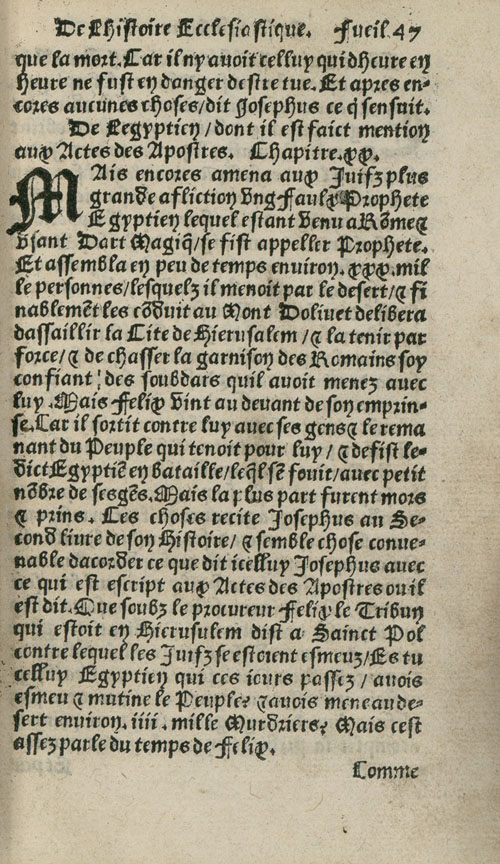 De Lhistoire Ecclesiastique. Fueil. 47
que la mort. Car il ny auoit celluy qui dheure en
heure ne fust en danger destre tue. Et apres en-
cores aucunes choses/dit Josephus ce q̄ sensuit.
De Legyptien/dont il est faict mention
aux Actes des Apostres. Chapitre. xx.
MAis encores amena aux Juifz plus
grande afliction vng Faulx Prophete
Egyptien lequel estant venu a Rōme ⁊
vsant Dart Magiq̄/se fist appeller Prophete.
Et assembla en peu de temps enuiron. xxx. mil
le personnes/lesquelz il menoit par le desert/⁊ fi
nablemēt les cōduit au Mont Doliuet delibera
dassaillir la Cite de Hierusalem/⁊ la tenir par
force/⁊ de chasser la garnison des Romains soy
confiant des souldars quil auoit menez auec
luy. Mais Felix vint au deuant de son emprin-
se. Car il sortit contre luy auec ses gens ⁊ le rema
nant du Peuple qui tenoit pour luy/⁊ defist le-
dict Egyptiē en bataille/leq̄l sē fouit/auec petit
nōbre de ses gēs. Mais la plus part furent mors
⁊ prins. Ces choses recite Josephus au Se-
cond liure de son Histoire/⁊ semble chose conue-
nable dacorder ce que dit icelluy Josephus auec
ce qui est escript aux Actes des Apostres ou il
est dit. Que soubz le procureur Felix le Tribun
qui estoit en Hierusulem dist a Sainct Pol
contre lequel les Juifz se estoient esmeuz/Es tu
celluy Egyptien qui ces iours passez/auois
esmeu ⁊ mutine le Peuple? ⁊ auois mene au de-
sert enuiron. iiii. mille Murdriers? Mais cest
assez parle du temps de Felix.
Comme